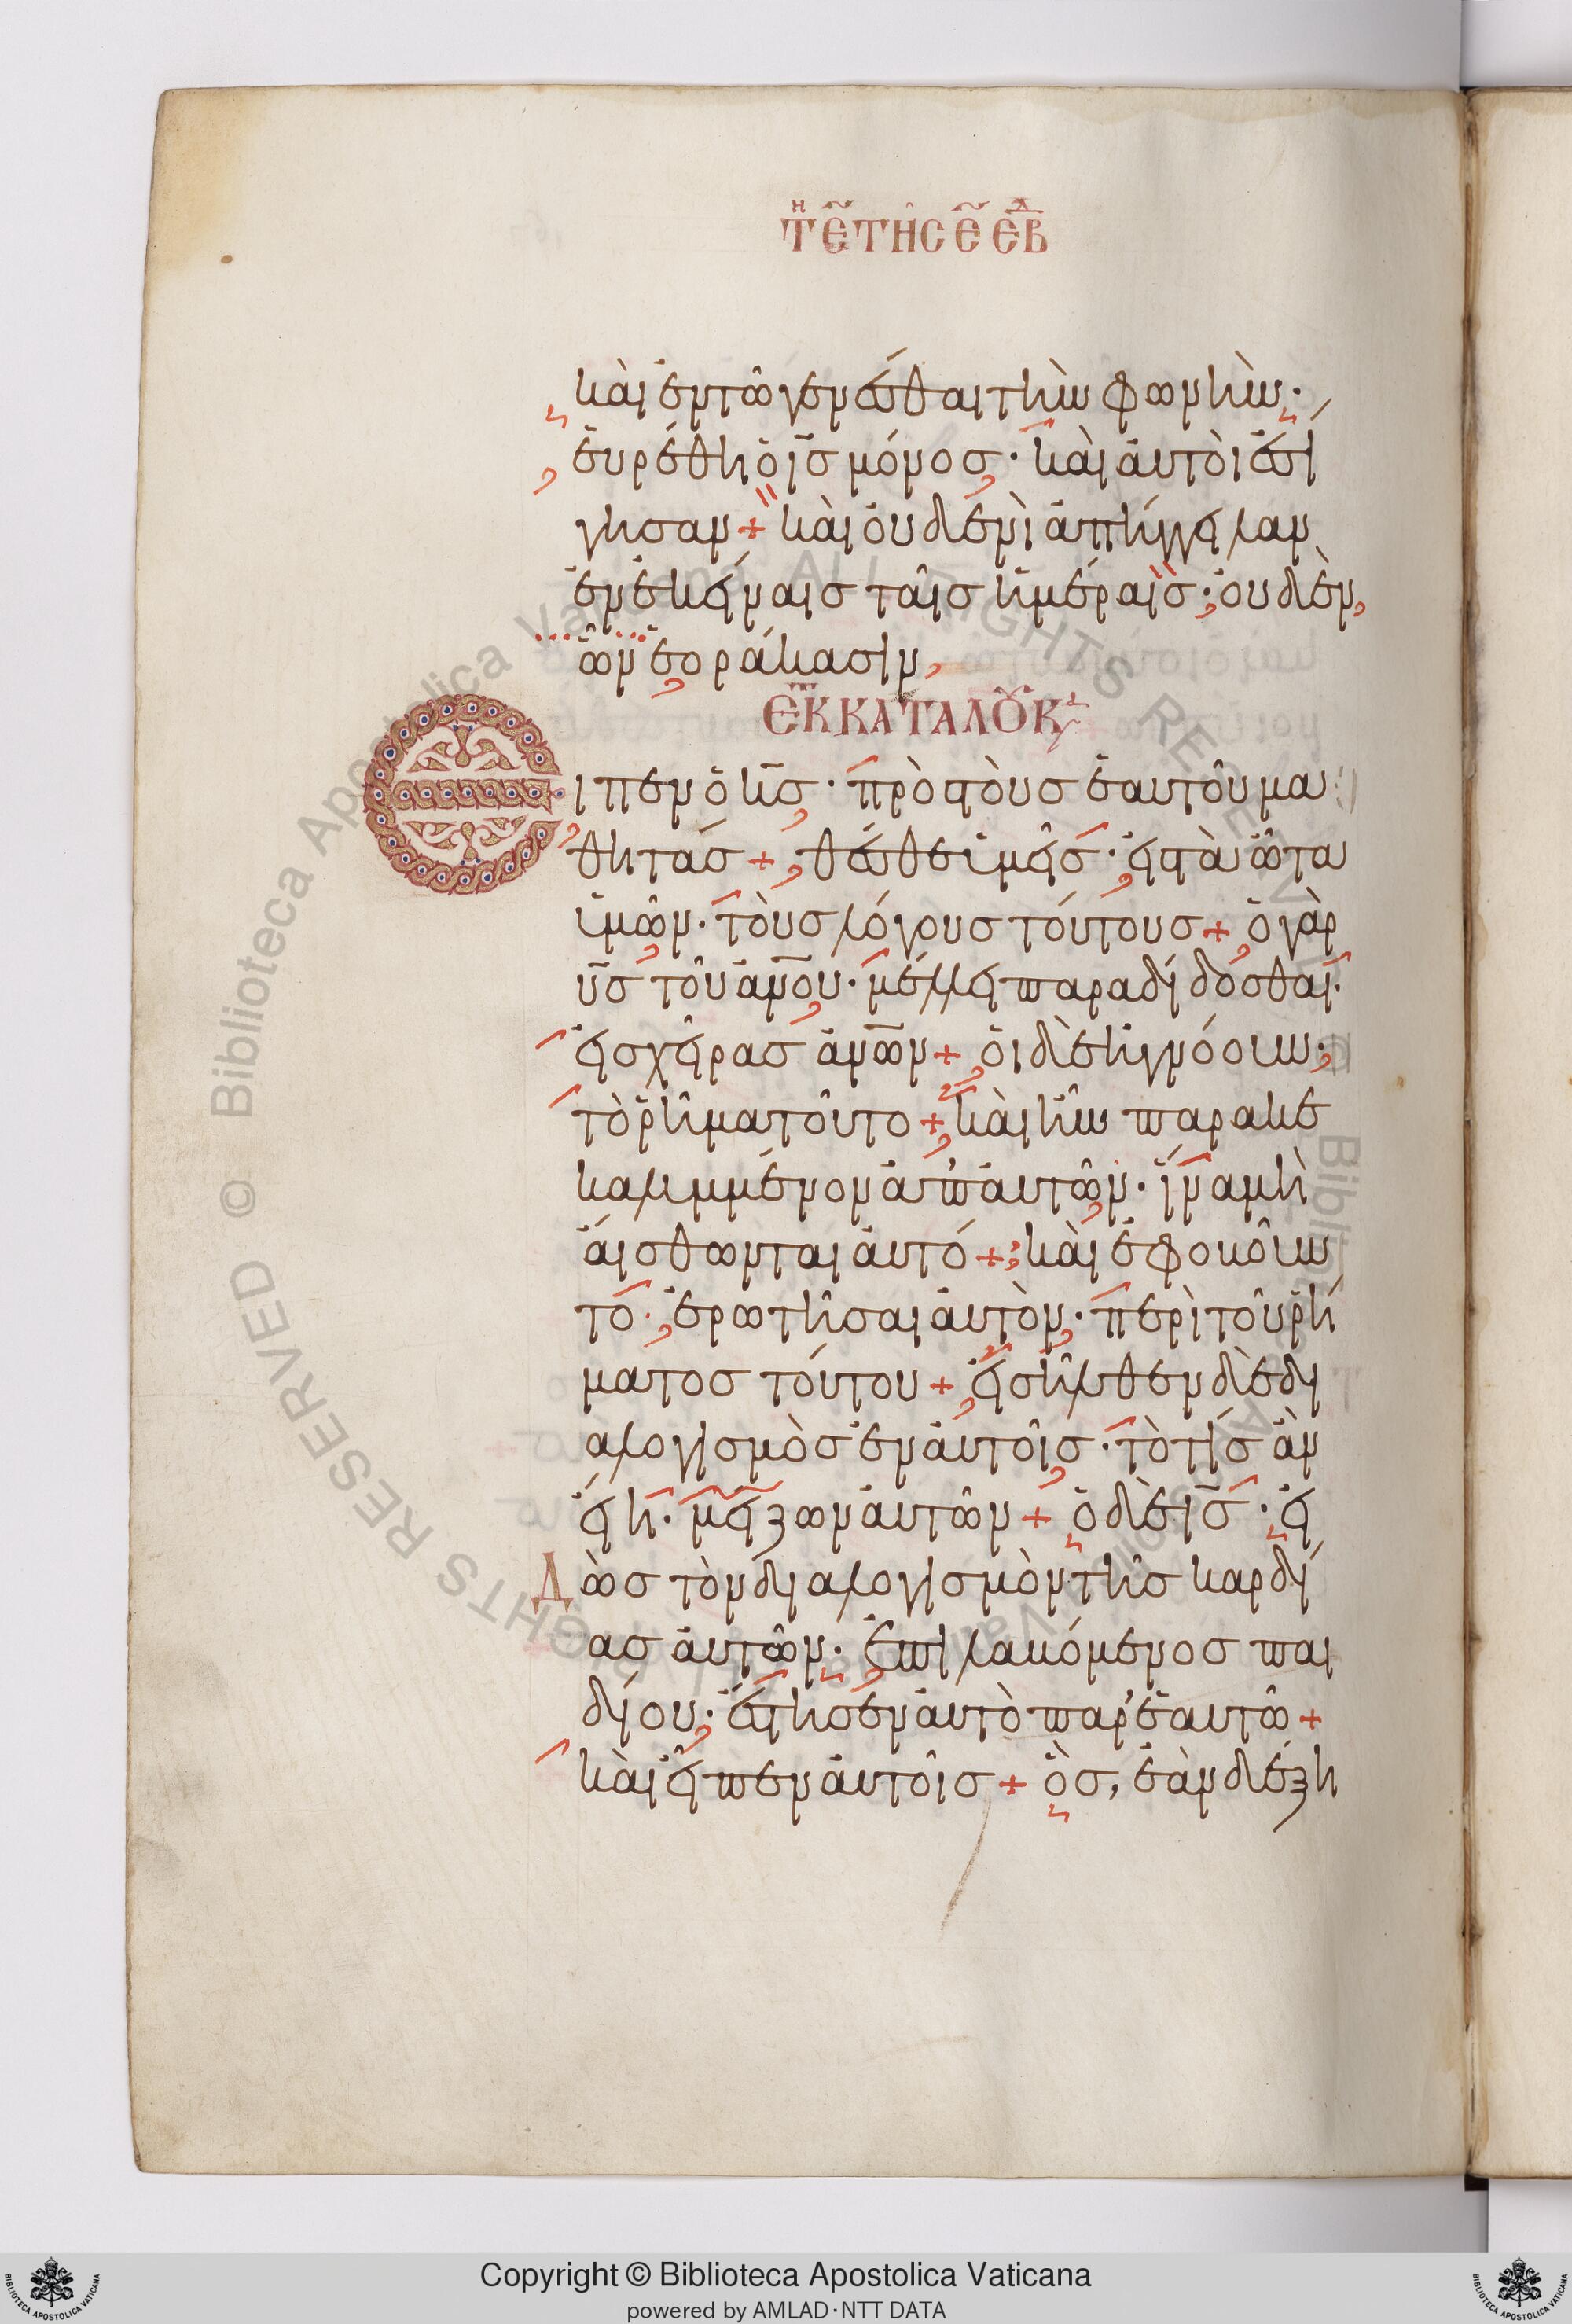 Τῌ Ε ΤΗΣ Ε ΕΒΔ
καὶ ἐν τῶ γενέσθαι τὴν φωνήν·
εὑρέθη ὁ ις μόνος· καὶ αὐτοὶ ἐσί
γησαν + καὶ οὐδενὶ ἀπήγγειλαν
ἐν ἐκείναις ταῖς ἡμέραις· οὐδὲν
ὧν ἑοράκασιν,
ΕΚ ΚΑΤΑ ΛΟΥΚ
Εἶπεν ὁ κς· πρὸς τοὺς ἑαυτοῦ μα
θητάς + θέσθε ὑμεῖς· εἰς τὰ ὦτα
ὑμῶν· τοὺς λόγους τούτους + ὁ γὰρ
υς τοῦ ανου· μέλλει παραδίδοσθαι·
εἰς χεῖρας ανων + οἱ δὲ ἠγνόουν·
τὸ ῥῆμα τοῦτο + καὶ ἦν παρακε
καλυμμένον ἀπ' αὐτῶν· ἵνα μὴ
αἴσθωνται αὐτό + καὶ ἐφοβοῦν
το· ἐρωτῆσαι αὐτὸν· περὶ τοῦ ῥή
ματος τούτου + εἰσῆλθεν δὲ δι
αλογισμὸς ἐν αὐτοῖς· τὸ τίς ἂν
εἴη· μείζων αὐτῶν + ὁ δὲ ις· εἰ
Δὼς τὸν διαλογισμὸν τῆς καρδί
ας αὐτῶν· ἐπιλαβόμενος παι
δίου· ἔστησεν αὐτὸ παρ' ἑαυτῶ +
καὶ εἶπεν αὐτοῖς + ὃς, ἐὰν δέξη
Copyright © Biblioteca Apostolica Vaticana
powered by AMLAD·NTT DATA